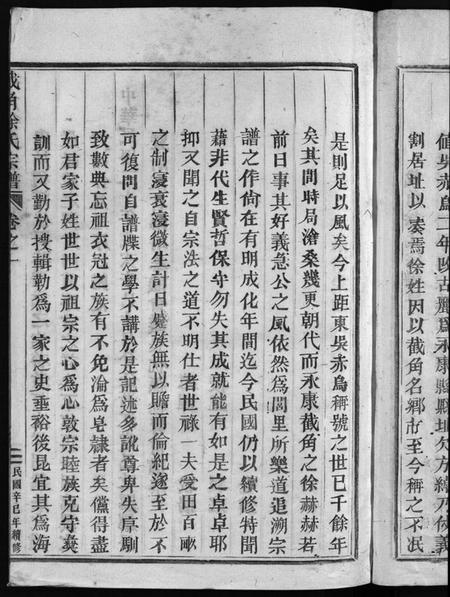 值吳赤烏二年改古麗爲永康縣縣址欠方紳乃仗義
割居址以奏焉徐姓因以截角名鄉市至今稱之不泯
是則足以風矣今上距東吳赤烏稱號之世已千餘年
矣其間時局滄桑幾更朝代而永康截角之徐赫赫若
前日事其好義急公之風依然爲閭里所樂道追溯宗
譜之作尙在有明成化年間迄今民國仍以續修特聞
藉非代生賢哲保守勿失其成就能有如是之卓卓耶
抑又聞之自宗法之道不明仕者世祿一夫受田百畝
之制寖衰寖微生計日蹙族無以贍而倫紀遂至於不
可復問自譜牒之學不講於是記述多訛尊卑失序馴
致數典忘祖衣冠之族有不免淪爲皂隸者矣儻得盡
如君家子姓世世以祖宗之心爲心敦宗睦族克守彝
訓而又勤於搜輯勒爲一家之史垂裕後昆宜其爲海
截角徐氏宗譜
卷之一
民國辛巳年續修